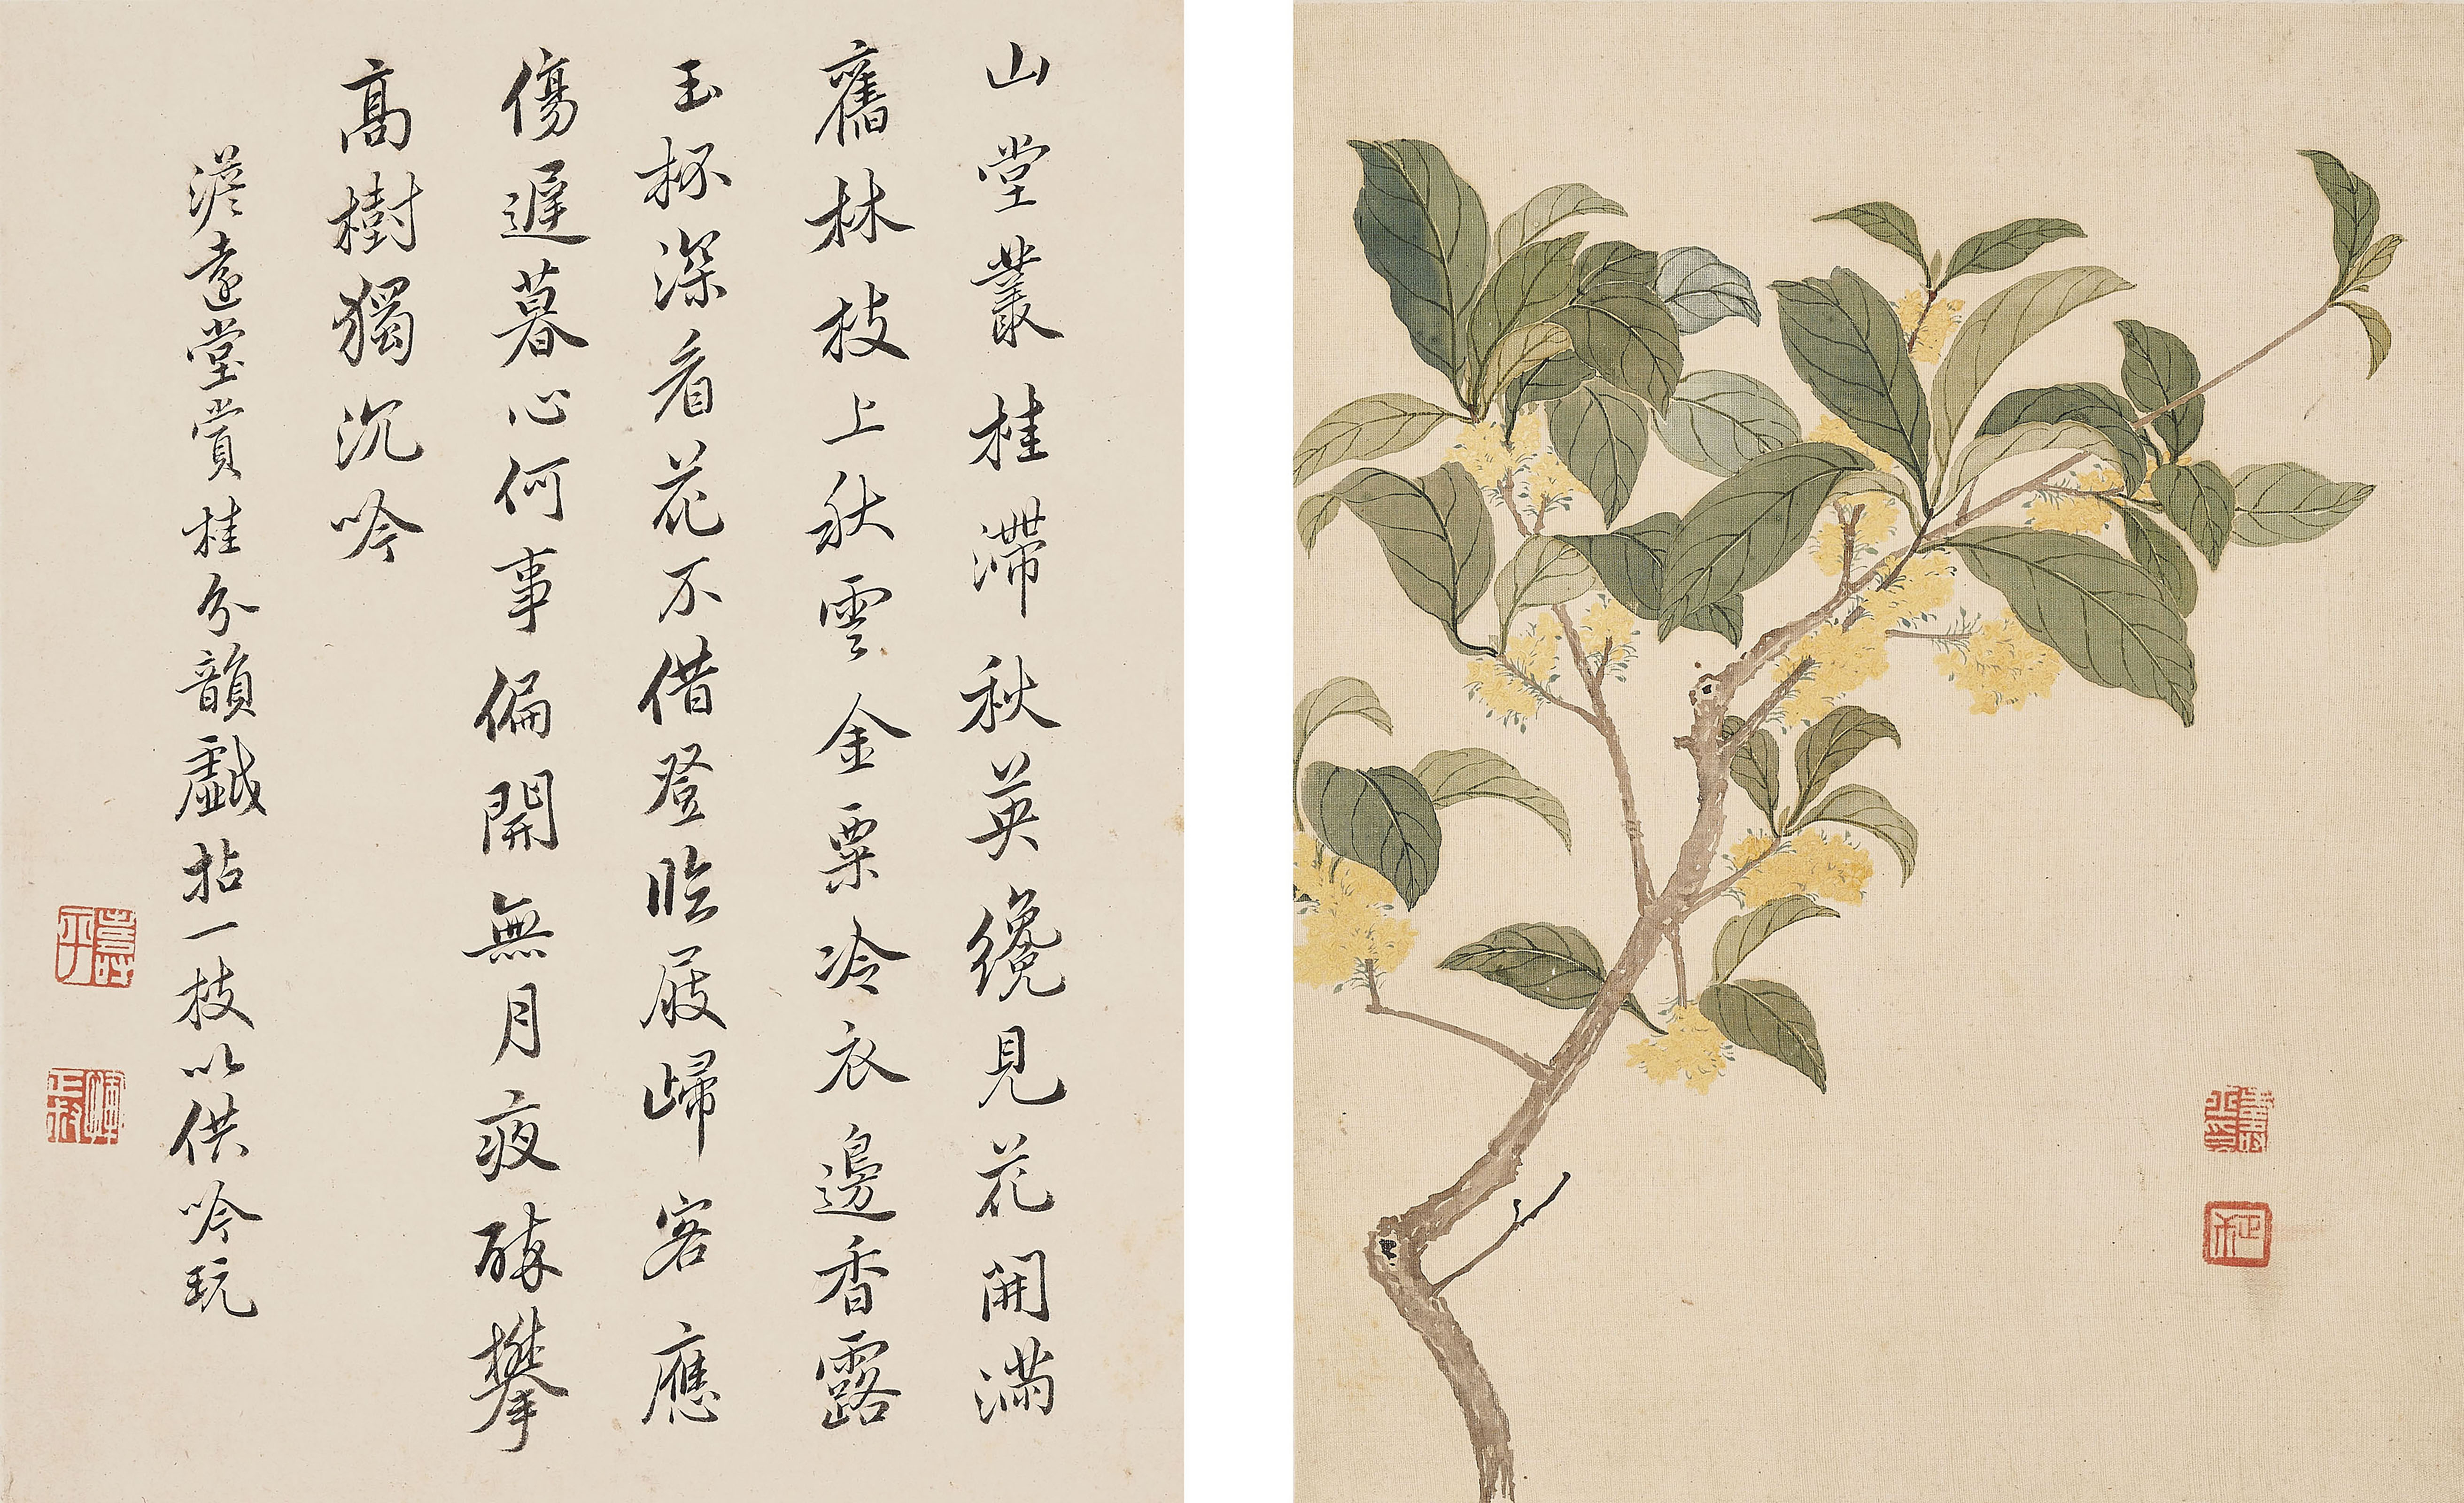 山堂叢桂滯秋英纔見花開滿
舊林枝上秋雲金粟冷衣邊香露
玉杯深看花不借登臨屐歸客應
傷遲暮心何事偏開無月夜醉攀
高樹獨沉吟
澹遠堂賞桂分韻戲拈一枝以供吟玩